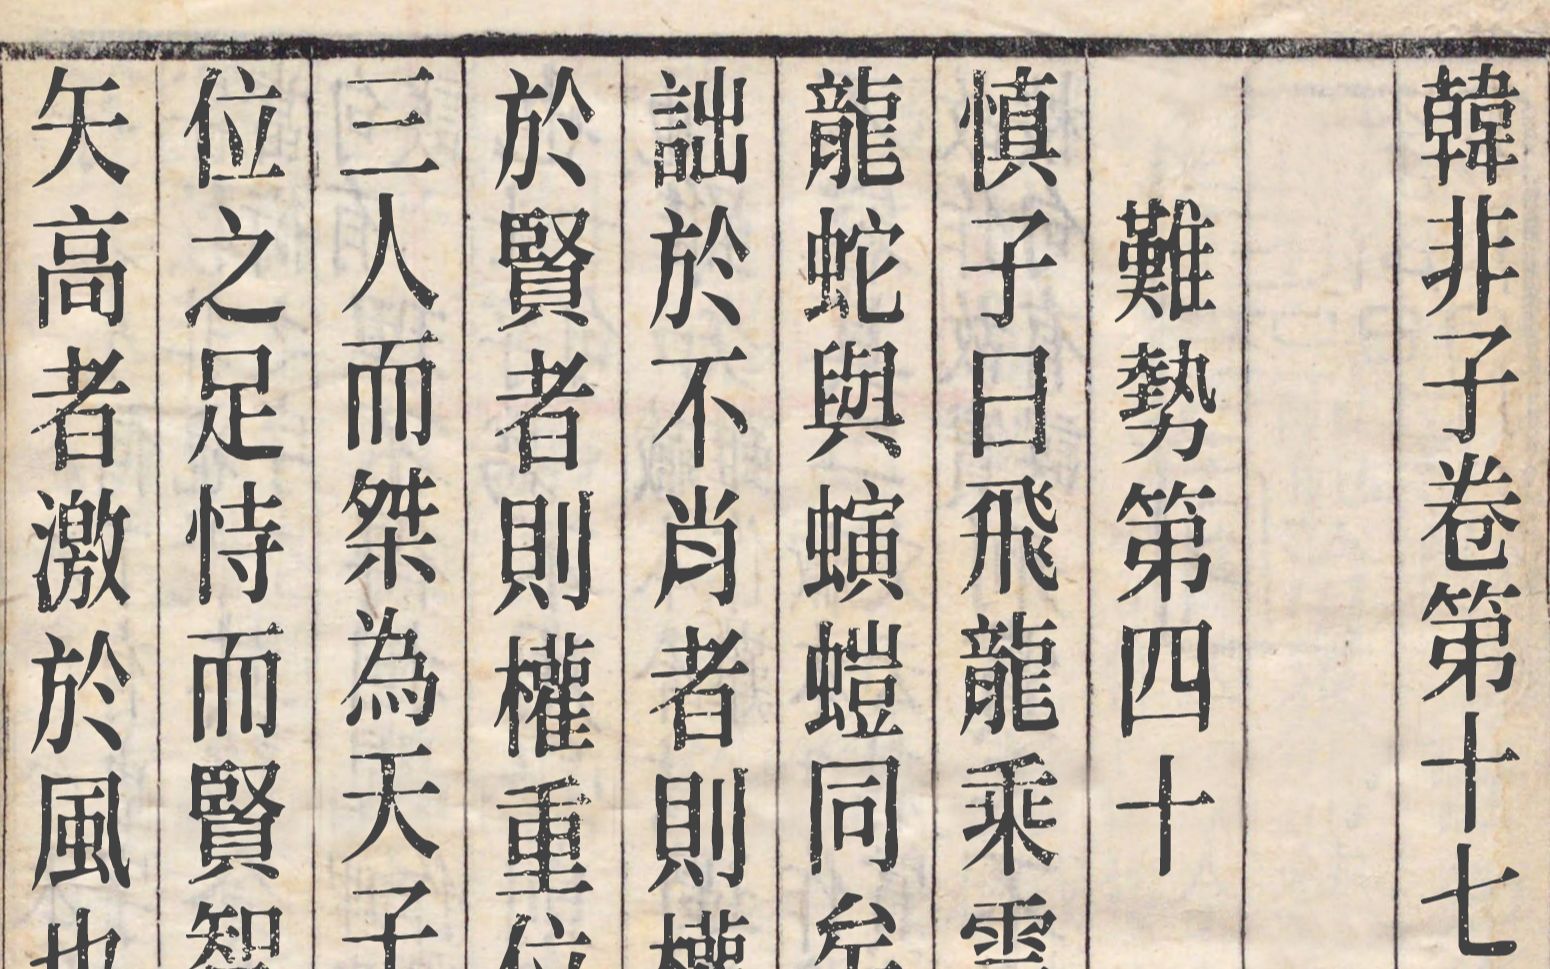 韓非子卷第十七
難勢第四十
慎子曰飛龍乘雲
龍蛇與螾螘同矣
詘於不肖者則權
於賢者則權重位
三人而桀為天子
位之足恃而賢智
矢高者激於風也